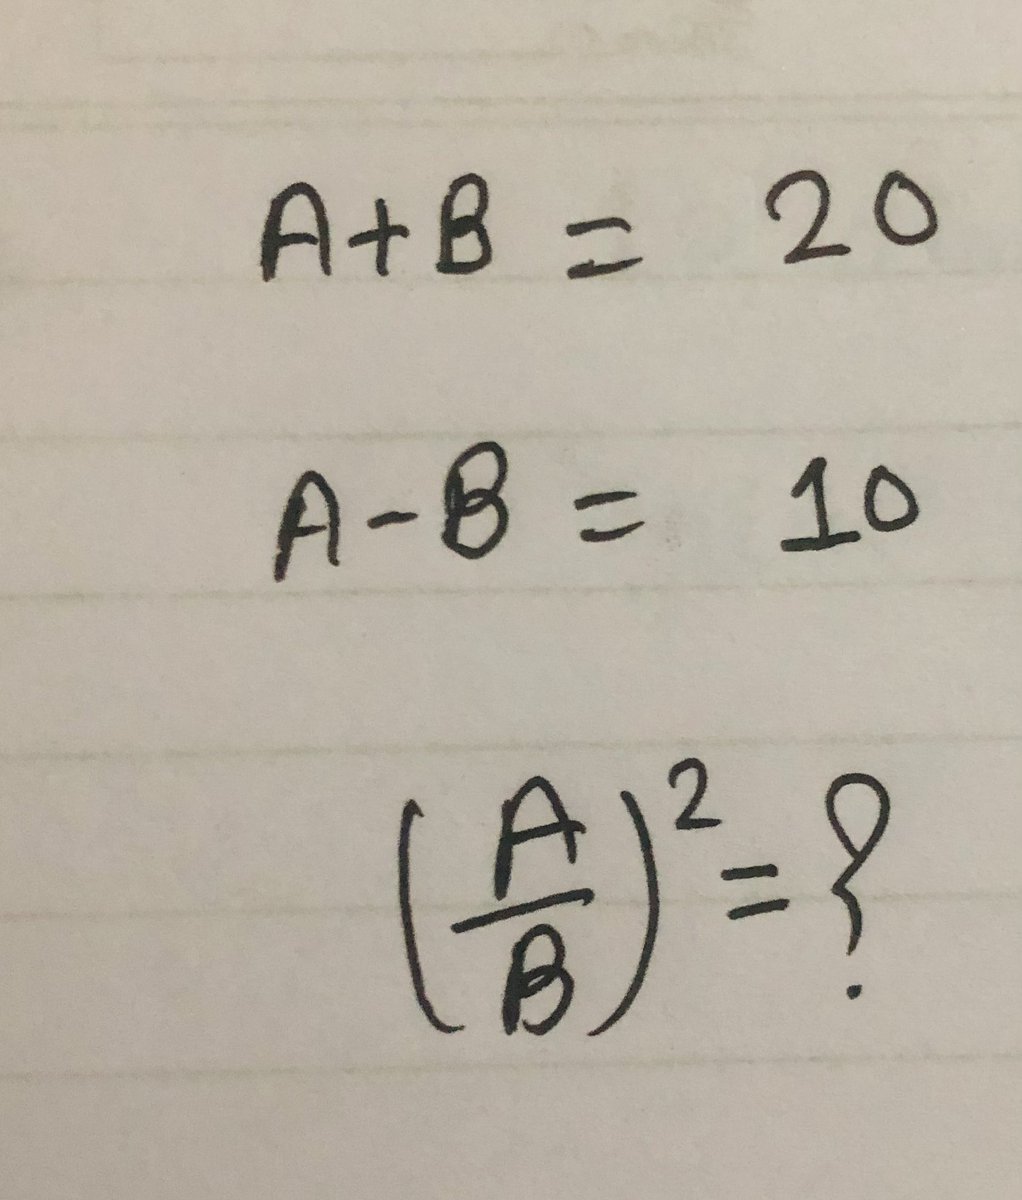 A+B = 20
A-B = 10
(A/B)² = ?